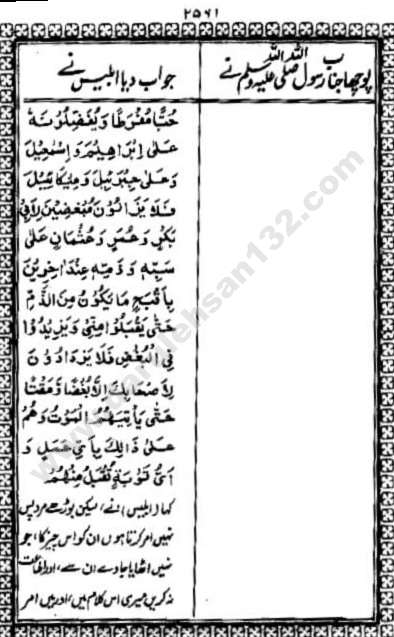 ٢٥٦١
پوچھا جناب رسول اللہ صلی اللہ علیہ وسلم نے
جواب دیا ابلیس نے
حُبًّا مُفْرِطًا وَيُفَضِّلُونَهُ
عَلٰى اِبْرَاهِيْمَ وَ اِسْمٰعِيْلَ
وَعَلٰى جِبْرَئِيْلَ وَمِيْكَائِيْلَ
فَلَا يَزَالُوْنَ مُبْغِضِيْنَ لِاَبِيْ
بَكْرٍ وَعُمَرَ وَعُثْمَانَ عَلٰى
سَبِّهٖ وَ ذَمِّهٖ عِنْدَ اٰخِرِيْنَ
بِاَقْبَحِ مَا يَكُوْنُ مِنَ الذَّمِّ
حَتّٰى يَقْبَلُوْا مِنِّيْ وَيَزِيْدُوْا
فِي الْبُغْضِ فَلَا يَزْدَادُوْنَ
لِاَصْحَابِكَ اِلَّا بُغْضًا وَّمَقْتًا
حَتّٰى يَأْتِيَهُمُ الْمَوْتُ وَهُمْ
عَلٰى ذَالِكَ بِاَيِّ عَمَلٍ وَ
اَيُّ تَوْبَةٍ تُقْبَلُ مِنْهُمْ
کہا (ابلیس) نے، لیکن بوڑھے مرد پس
نہیں امر کرتا ہوں ان کو اس چیز کا، جو
نہیں اٹھایا جاوے ان سے، اور اطاعت
نہ کریں میری اس کلام میں، اور میں امر
www.darulehsan132.com